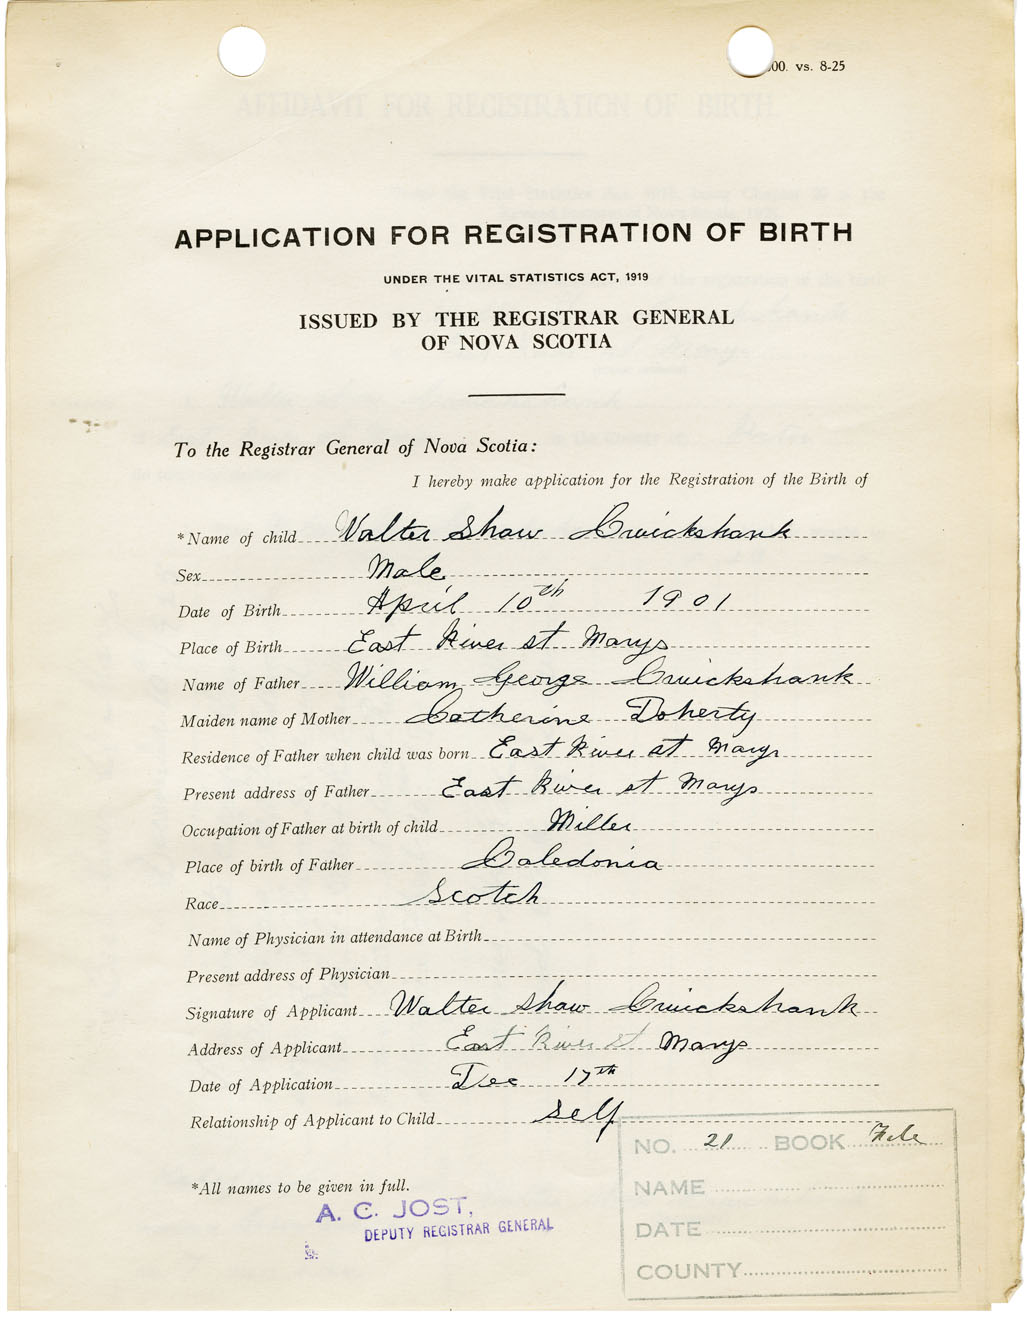 00. vs. 8-25
APPLICATION FOR REGISTRATION OF BIRTH
UNDER THE VITAL STATISTICS ACT, 1919
ISSUED BY THE REGISTRAR GENERAL
OF NOVA SCOTIA
To the Registrar General of Nova Scotia:
I hereby make application for the Registration of the Birth of
*Name of child Walter Shaw Cruickshank
Sex Male
Date of Birth April 10th 1901
Place of Birth East River st Marys
Name of Father William George Cruickshank
Maiden name of Mother Catherine Doherty
Residence of Father when child was born East River st Marys
Present address of Father East River st Marys
Occupation of Father at birth of child Miller
Place of birth of Father Caledonia
Race Scotch
Name of Physician in attendance at Birth
Present address of Physician
Signature of Applicant Walter Shaw Cruickshank
Address of Applicant East River st Marys
Date of Application Dec 17th
Relationship of Applicant to Child self
NO. 21 BOOK File
*All names to be given in full.
NAME
A. C. JOST,
DEPUTY REGISTRAR GENERAL
DATE
COUNTY